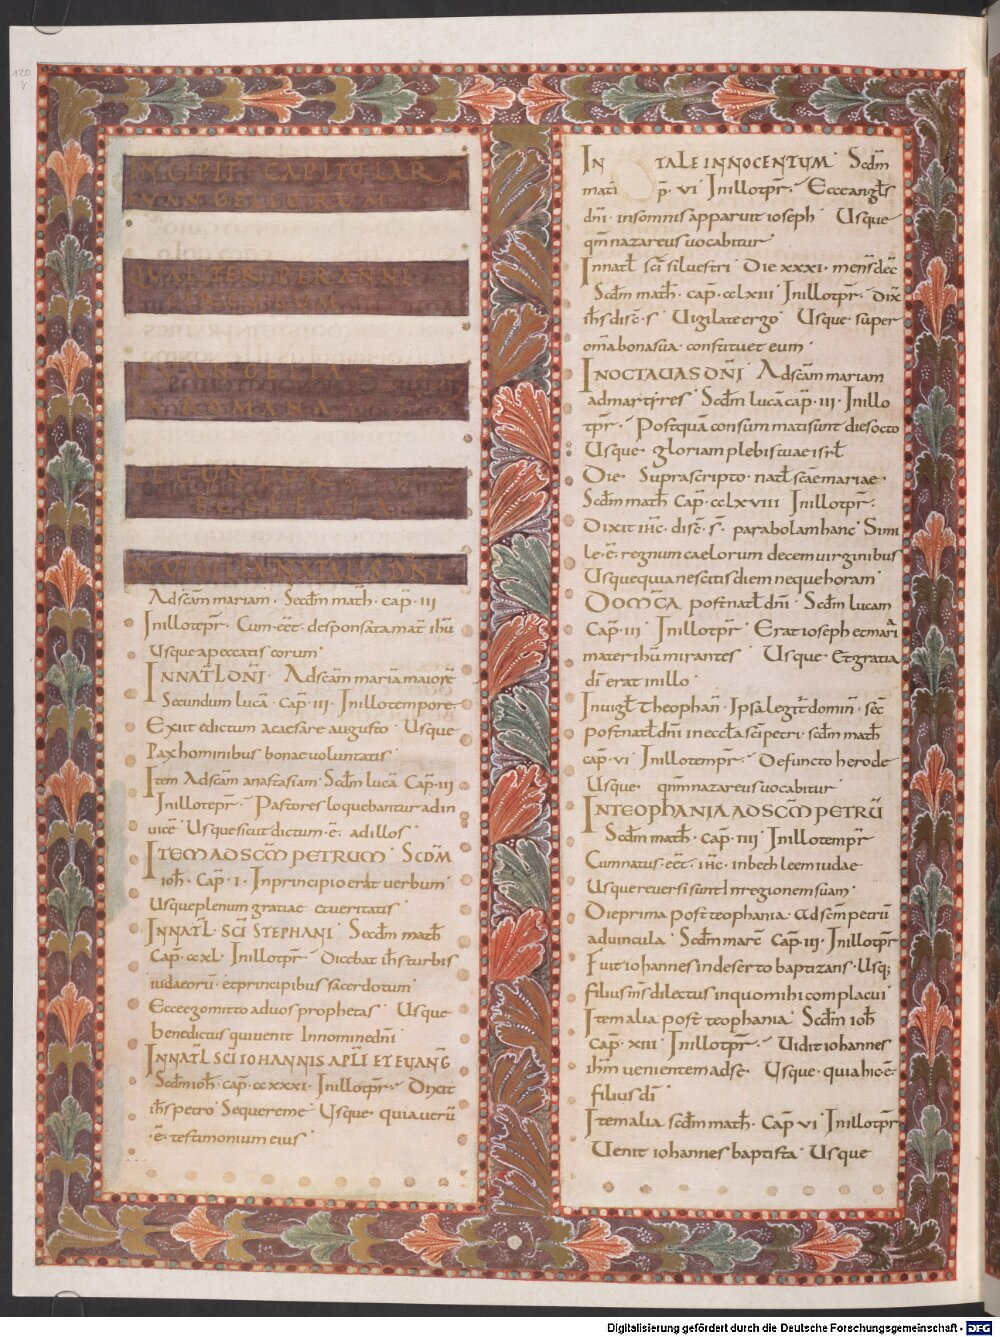 120
v
INCIPIT CAPITULAR
EVANGELIORUM
QUALITER PER ANNI
CIRCULUM
EVANGELIA
ROMANA
LEGUNTUR
ECCLESIA
IN VIGILIA NATALIS DNI
Adscam mariam · Secdm math · cap · III
Inillotpr · Cum · eet · desponsata mat ihu
Usque apeccatis eorum
INNATL DNI · Adscam maria maiore
Secundum luca · Cap · III · Inillotempore ·
Exiit edictum acaesare augusto · Usque
Pax hominibus bonae voluntatis
Item Adscam anastasiam Secdm luca Cap · III
Inillotepr · Pastores loquebantur adin
vice Usque sicut dictum · e · ad illos
ITEM AD SCM PETRUM SCDM
ioh · Cap · I · Inprincipio erat verbum
Usque plenum gratiae et veritatis
INNATL · SCI STEPHANI Secdm math
Cap · ccxl · Inillotpr · Dicebat ihs turbis
iudaeoru · et principibus sacerdotum
Ecce ego mitto ad vos prophetas Usque
benedictus qui venit In nomine dni
INNATL SCI IOHANNIS APLI ET EVANG
Secdm ioh · cap · ccxxxi · Inillotpr · Dixit
ihs petro Sequere me Usque · quia veru
· e · testimonium eius
IN TALE INNOCENTUM Scdm
mati p · VI Inillotpr · Ecce angls
dni · in somnis apparuit ioseph Usque
qm nazareus vocabitur
Innatl sci silvestri Die xxxi · mens dec
Scdm math · cap · cclxiii Inillotpr · dix
ihs disc · s Vigilate ergo Usque super
oma bona sua constituet eum
INOCTAVAS DNI Adscam mariam
admartyres Scdm luca cap · III · Inillo
tpr · Postqua consummati sunt dies octo
Usque · gloriam plebis tuae isrl
Die Suprascripto · natl scae mariae ·
Scdm math Cap · cclxviii Inillotpr ·
Dixit ihc · disc · s · parabolam hanc Simi
le · e · regnum caelorum decem virginibus
Usque quia nescitis diem neque horam
DOMCA post natl dni Scdm lucam
Cap · III Inillotpr Erat ioseph et maria
mater ihu mirantes Usque · Et gratia
di erat in illo
Invigl Theophan · Ipsa legit domin · sec
post natl dni in eccla sci petri · scdm math
cap · VI Inillotempr Defuncto herode
Usque qm nazareus vocabitur
INTEOPHANIA AD SCM PETRU
Scdm math · cap · IIII Inillotempr
Cum natus · eet · ihc · in bethleem iudae
Usque reversi sunt In regionem suam
Die prima post teophania · Ad scm petru
ad vincula Scdm marc Cap · III · Inillotpr
Fuit iohannes in deserto baptizans · Usq;
filius ms dilectus in quo mihi complacui
Item alia post teophania Scdm ioh
Cap · XIII Inillotpr · Vidit iohannes
ihm venientem ad se Usque · quia hic · e ·
filius di
Item alia scdm math · Cap VI Inillotpr
Venit iohannes baptista Usque
Digitalisierung gefördert durch die Deutsche Forschungsgemeinschaft - DFG